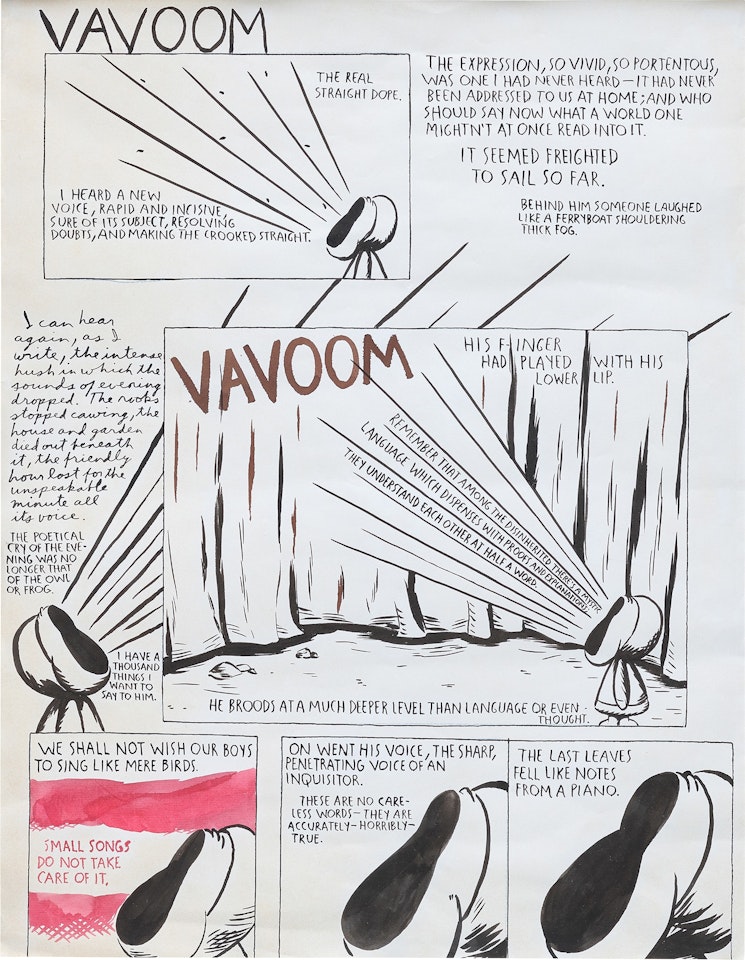 VAVOOM
THE REAL
STRAIGHT DOPE.
I HEARD A NEW
VOICE, RAPID AND INCISIVE,
SURE OF ITS SUBJECT, RESOLVING
DOUBTS, AND MAKING THE CROOKED STRAIGHT.
THE EXPRESSION, SO VIVID, SO PORTENTOUS,
WAS ONE I HAD NEVER HEARD—IT HAD NEVER
BEEN ADDRESSED TO US AT HOME; AND WHO
SHOULD SAY NOW WHAT A WORLD ONE
MIGHTN'T AT ONCE READ INTO IT.
IT SEEMED FREIGHTED
TO SAIL SO FAR.
BEHIND HIM SOMEONE LAUGHED
LIKE A FERRYBOAT SHOULDERING
THICK FOG.
I can hear
again, as I
write, the intense
hush in which the
sounds of evening
dropped. The rooks
stopped cawing, the
house and garden
died out beneath
it, the friendly
hour lost for the
unspeakable
minute all
its voice.
THE POETICAL
CRY OF THE EVE-
NING WAS NO
LONGER THAT
OF THE OWL
OR FROG.
I HAVE A
THOUSAND
THINGS I
WANT TO
SAY TO HIM.
VAVOOM
HIS FINGER
HAD PLAYED WITH HIS
LOWER LIP.
REMEMBER THAT AMONG THE DISINHERITED THERE'S A MYSTIC
LANGUAGE WHICH DISPENSES WITH PROOFS AND EXPLANATIONS.
THEY UNDERSTAND EACH OTHER AT HALF A WORD.
HE BROODS AT A MUCH DEEPER LEVEL THAN LANGUAGE OR EVEN
THOUGHT.
WE SHALL NOT WISH OUR BOYS
TO SING LIKE MERE BIRDS.
SMALL SONGS
DO NOT TAKE
CARE OF IT.
ON WENT HIS VOICE, THE SHARP,
PENETRATING VOICE OF AN
INQUISITOR.
THESE ARE NO CARE-
LESS WORDS—THEY ARE
ACCURATELY—HORRIBLY—
TRUE.
THE LAST LEAVES
FELL LIKE NOTES
FROM A PIANO.